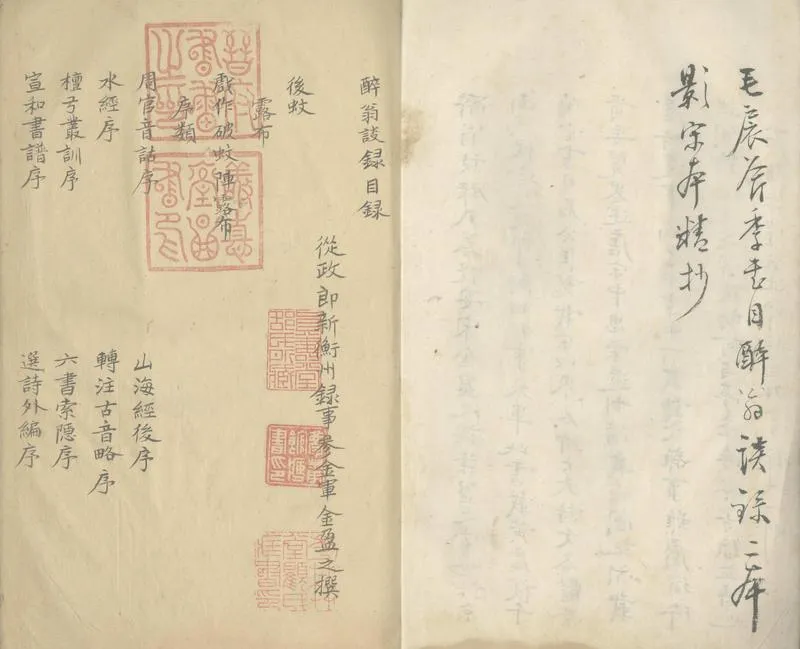 毛扆斧季書目醉翁談録二本
影宋本精抄
醉翁談録目録
從政郎新衡州録事參金軍金盈之撰
後蚊
露布
戲作破蚊陣露布
序類
周官音詁序
山海經後序
水經序
轉注古音略序
檀弓叢訓序
六書索隱序
宣和書譜序
選詩外編序